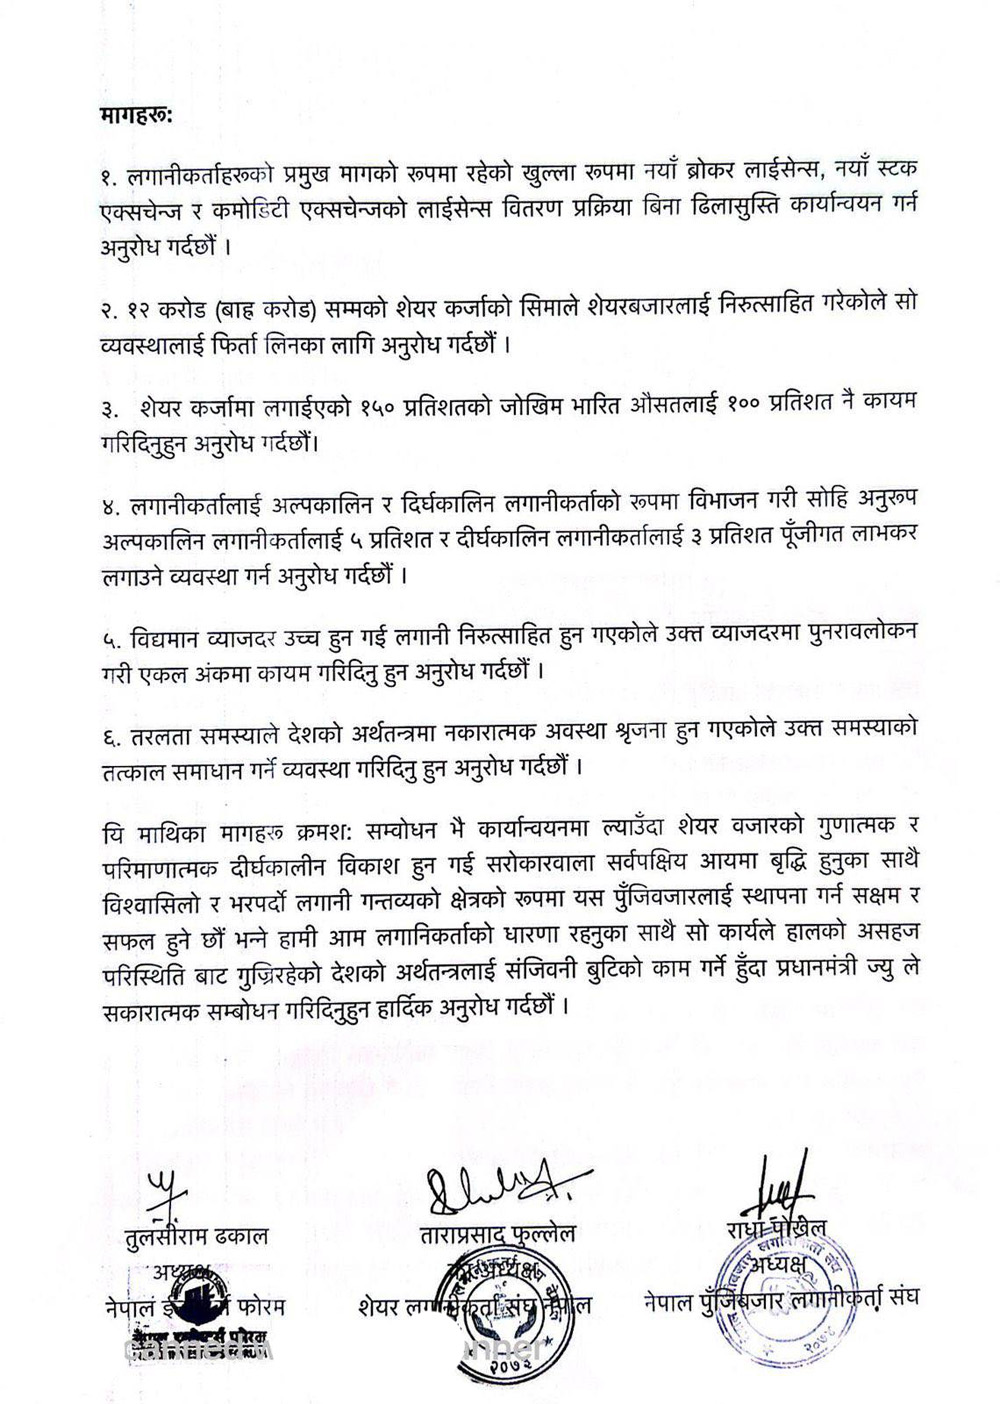 मागहरू:
१. लगानीकर्ताहरूको प्रमुख मागको रूपमा रहेको खुल्ला रूपमा नयाँ ब्रोकर लाईसेन्स, नयाँ स्टक
एक्सचेन्ज र कमोडिटी एक्सचेन्जको लाईसेन्स वितरण प्रक्रिया बिना ढिलासुस्ति कार्यान्वयन गर्न
अनुरोध गर्दछौं ।
२. १२ करोड (बाह्र करोड) सम्मको शेयर कर्जाको सिमाले शेयरबजारलाई निरुत्साहित गरेकोले सो
व्यवस्थालाई फिर्ता लिनका लागि अनुरोध गर्दछौं ।
३. शेयर कर्जामा लगाईएको १५० प्रतिशतको जोखिम भारित औसतलाई १०० प्रतिशत नै कायम
गरिदिनुहुन अनुरोध गर्दछौं।
४. लगानीकर्तालाई अल्पकालिन र दिर्घकालिन लगानीकर्ताको रूपमा विभाजन गरी सोहि अनुरूप
अल्पकालिन लगानीकर्तालाई ५ प्रतिशत र दीर्घकालिन लगानीकर्तालाई ३ प्रतिशत पूँजीगत लाभकर
लगाउने व्यवस्था गर्न अनुरोध गर्दछौं ।
५. विद्यमान व्याजदर उच्च हुन गई लगानी निरुत्साहित हुन गएकोले उक्त व्याजदरमा पुनरावलोकन
गरी एकल अंकमा कायम गरिदिनु हुन अनुरोध गर्दछौं ।
६. तरलता समस्याले देशको अर्थतन्त्रमा नकारात्मक अवस्था श्रृजना हुन गएकोले उक्त समस्याको
तत्काल समाधान गर्ने व्यवस्था गरिदिनु हुन अनुरोध गर्दछौं ।
यि माथिका मागहरू क्रमश: सम्वोधन भै कार्यान्वयनमा ल्याउँदा शेयर वजारको गुणात्मक र
परिमाणात्मक दीर्घकालीन विकाश हुन गई सरोकारवाला सर्वपक्षिय आयमा बृद्धि हुनुका साथै
विश्वासिलो र भरपर्दो लगानी गन्तव्यको क्षेत्रको रूपमा यस पुँजिवजारलाई स्थापना गर्न सक्षम र
सफल हुने छौं भन्ने हामी आम लगानिकर्ताको धारणा रहनुका साथै सो कार्यले हालको असहज
परिस्थिति बाट गुज्रिरहेको देशको अर्थतन्त्रलाई संजिवनी बुटिको काम गर्ने हुँदा प्रधानमंत्री ज्यु ले
सकारात्मक सम्बोधन गरिदिनुहुन हार्दिक अनुरोध गर्दछौं ।
तुलसीराम ढकाल ताराप्रसाद फुल्लेल राधा पोखेल
अध्यक्ष अध्यक्ष अध्यक्ष
नेपाल फोरम शेयर लगानीकर्ता संघ नेपाल नेपाल पुँजिबजार लगानीकर्ता संघ
२०७३